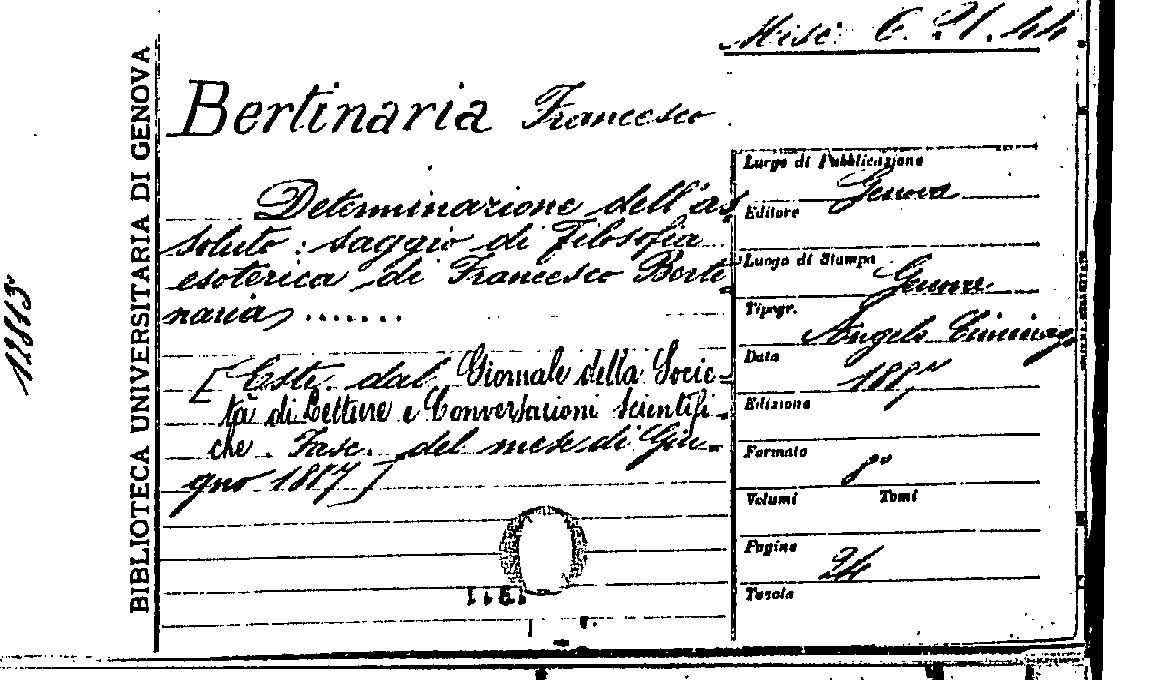 Misc. C. 21.44
BIBLIOTECA UNIVERSITARIA DI GENOVA
12813
Bertinaria Francesco
Determinazione dell'as
soluto : saggio di Filosofia
esoterica di Francesco Berti-
naria .......
[Estr. dal Giornale della Socie-
tà di Letture e Conversazioni scientifi-
che. Fasc. del mese di Giu-
gno 1887]
Luogo di Pubblicazione
Genova
Editore
Luogo di Stampa
Genova
Tipogr.
Angelo Ciminago
Data
1887
Edizione
Formato
8°
Volumi Tomi
Pagine
24
Tavole
1911